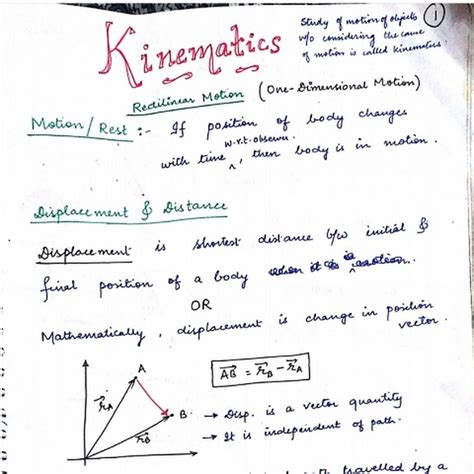 Study of motion of objects
w/o considering the cause
of motion is called kinematics.
1
Kinematics
Rectilinear Motion (One-Dimensional Motion)
Motion/Rest :- If position of body changes
w.r.t. observer
with time ^, then body is in motion.
Displacement & Distance
Displacement is shortest distance b/w initial &
final position of a body
OR
Mathematically, displacement is change in position
vector.
A
AB = rB - rA
rA
B
→ Disp. is a vector quantity
rB
→ It is independent of path.
travelled by a